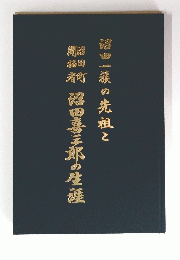 沼田一族の先祖と
沼田町
開拓者
沼田喜三郎の生涯